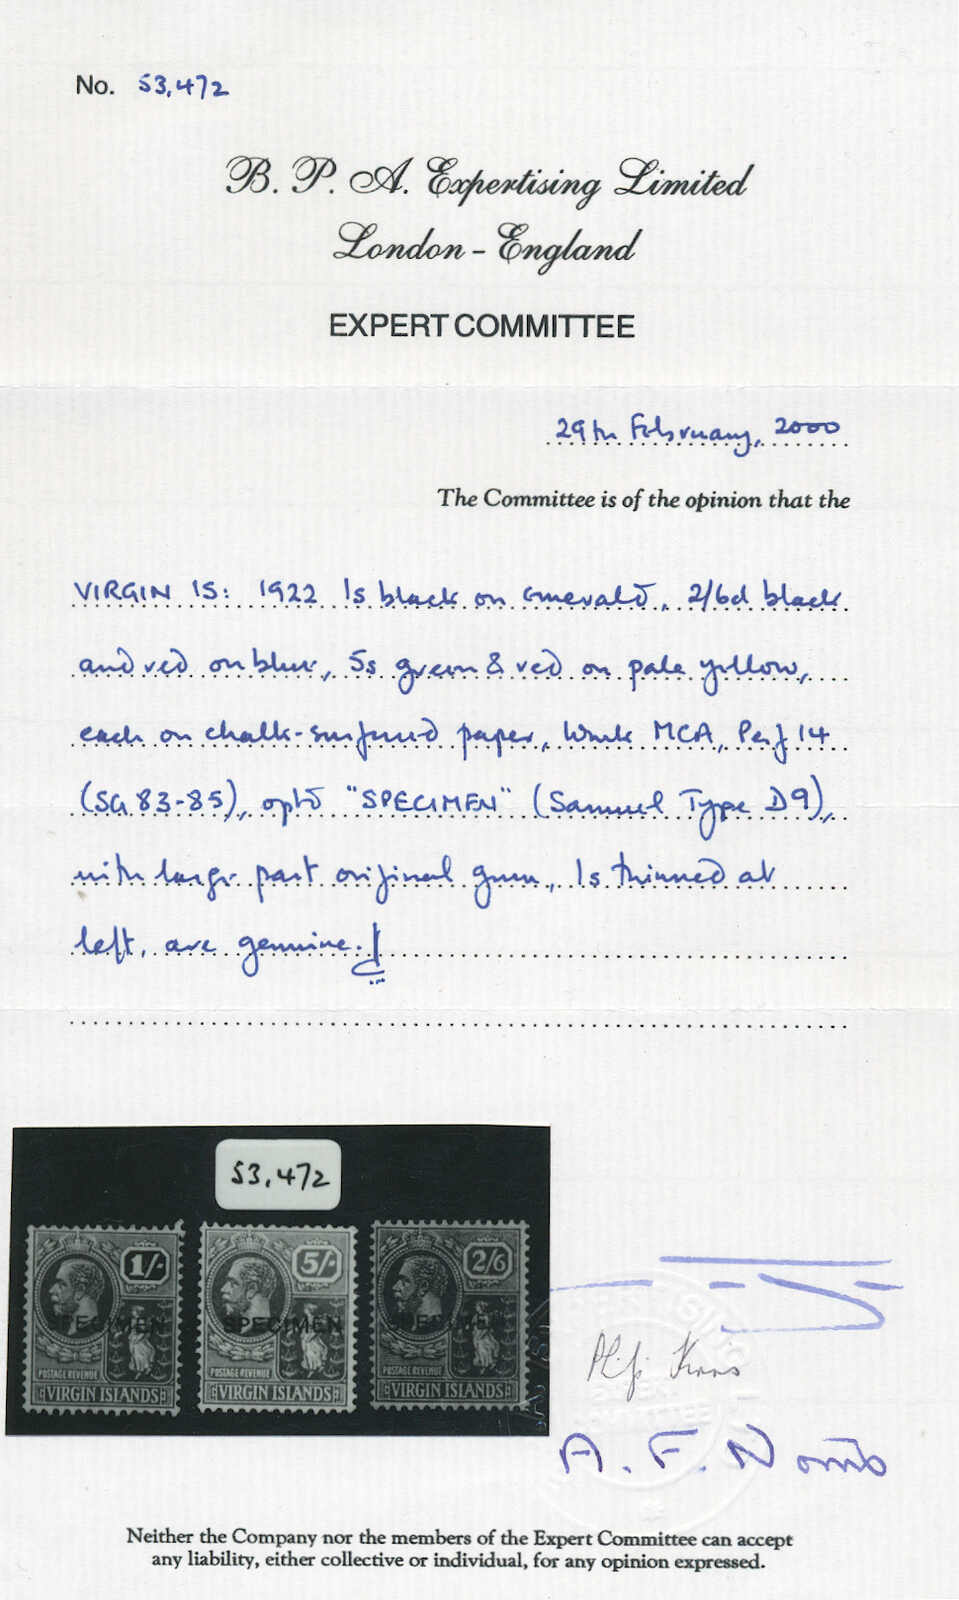 No. 53,472
B. P. A. Expertising Limited
London - England
EXPERT COMMITTEE
29th February, 2000
The Committee is of the opinion that the
VIRGIN IS: 1922 1s black on emerald, 2/6d black
and red on blue, 5s green & red on pale yellow,
each on chalk-surfaced paper, Wmk MCA, Perf 14
(SG 83-85), optd "SPECIMEN" (Samuel Type D9),
with large part original gum, 1s thinned at
left, are genuine.
53,472
1/- 5/- 2/6
SPECIMEN SPECIMEN SPECIMEN
POSTAGE REVENUE POSTAGE REVENUE POSTAGE REVENUE
VIRGIN ISLANDS VIRGIN ISLANDS VIRGIN ISLANDS
A. F. Norris
Neither the Company nor the members of the Expert Committee can accept
any liability, either collective or individual, for any opinion expressed.